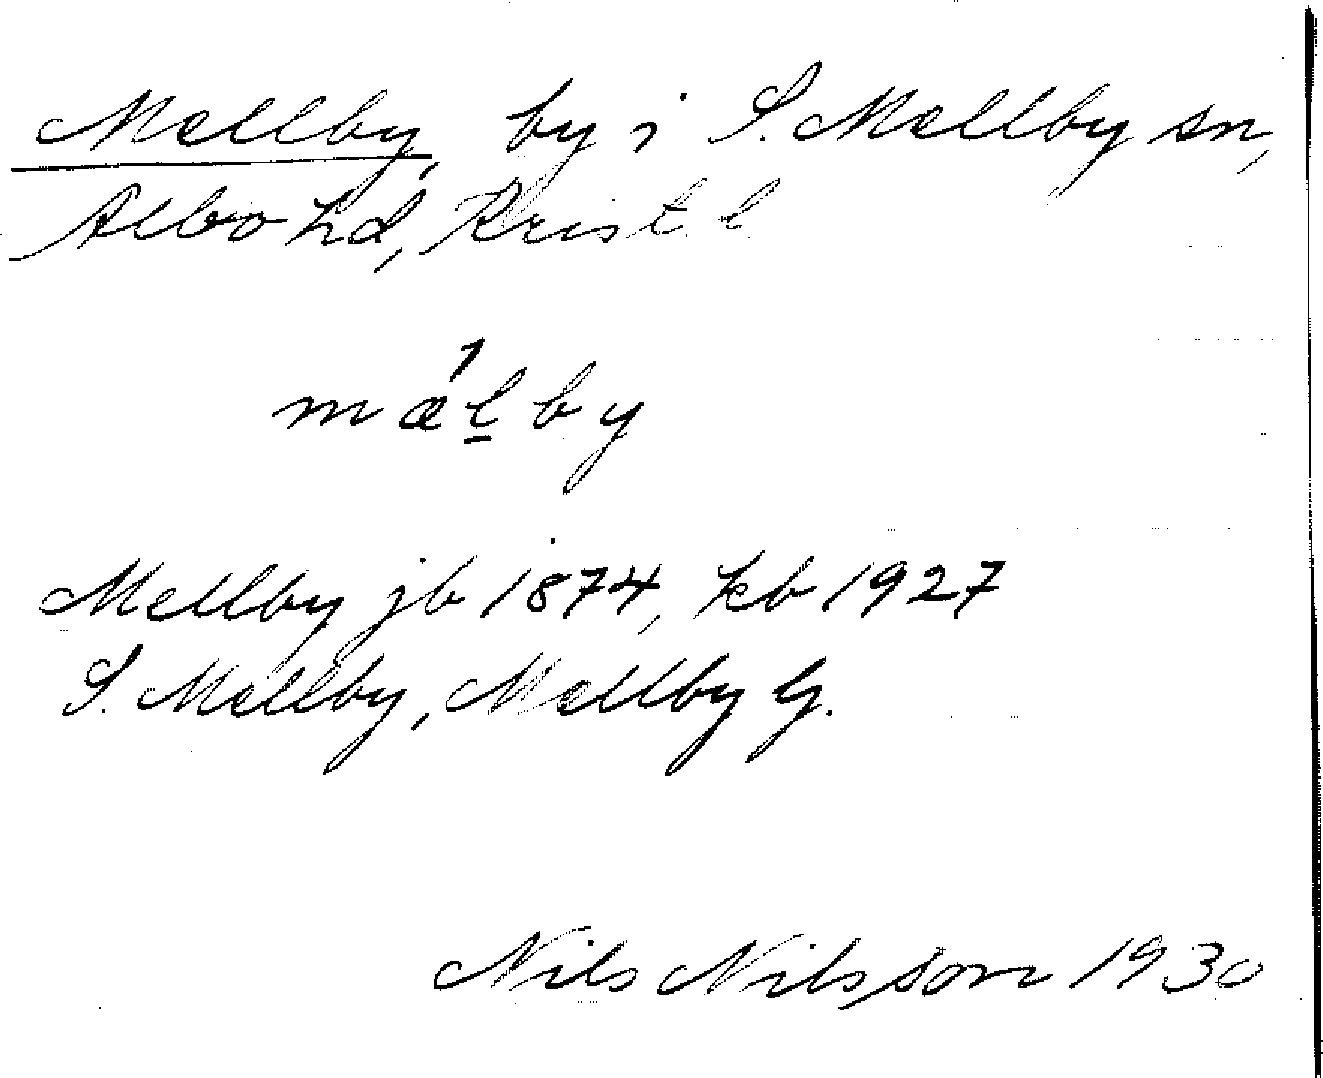 Mellby, by i S. Mellby sn,
Albo hd, Krist. l
mǽl̲by
Mellby jb 1874, kb 1927
S. Mellby, Mellby G.
Nils Nilsson 1930